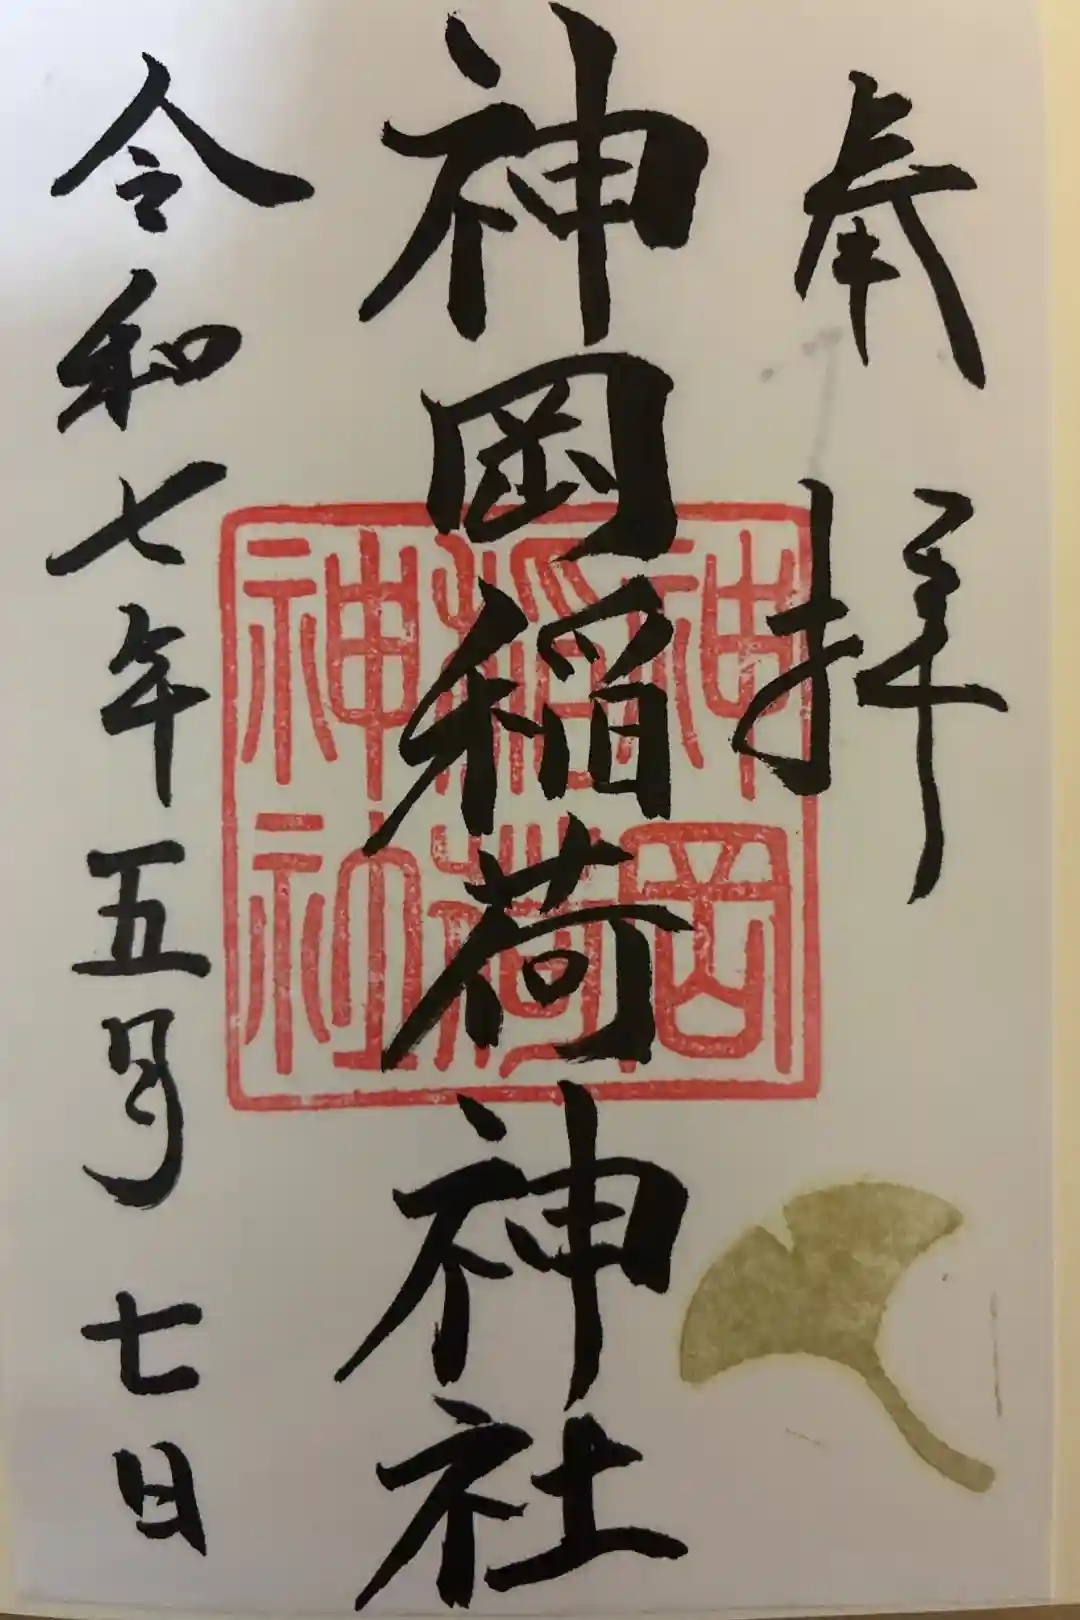 奉拝
神岡稲荷神社
神岡稲荷神社
令和七年五月七日